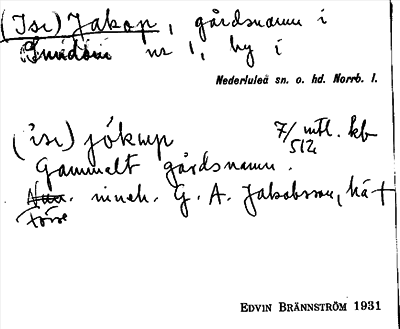 (Isr) Jakop, gårdsnamn i
nr 1, by i
Nederluleå sn. o. hd. Norrb. l.
(isr) jókup 7/512 mtl. kb
Gammalt gårdsnamn.
Förre inneh. G. A. Jakobsson, hä +
EDVIN BRÄNNSTRÖM 1931